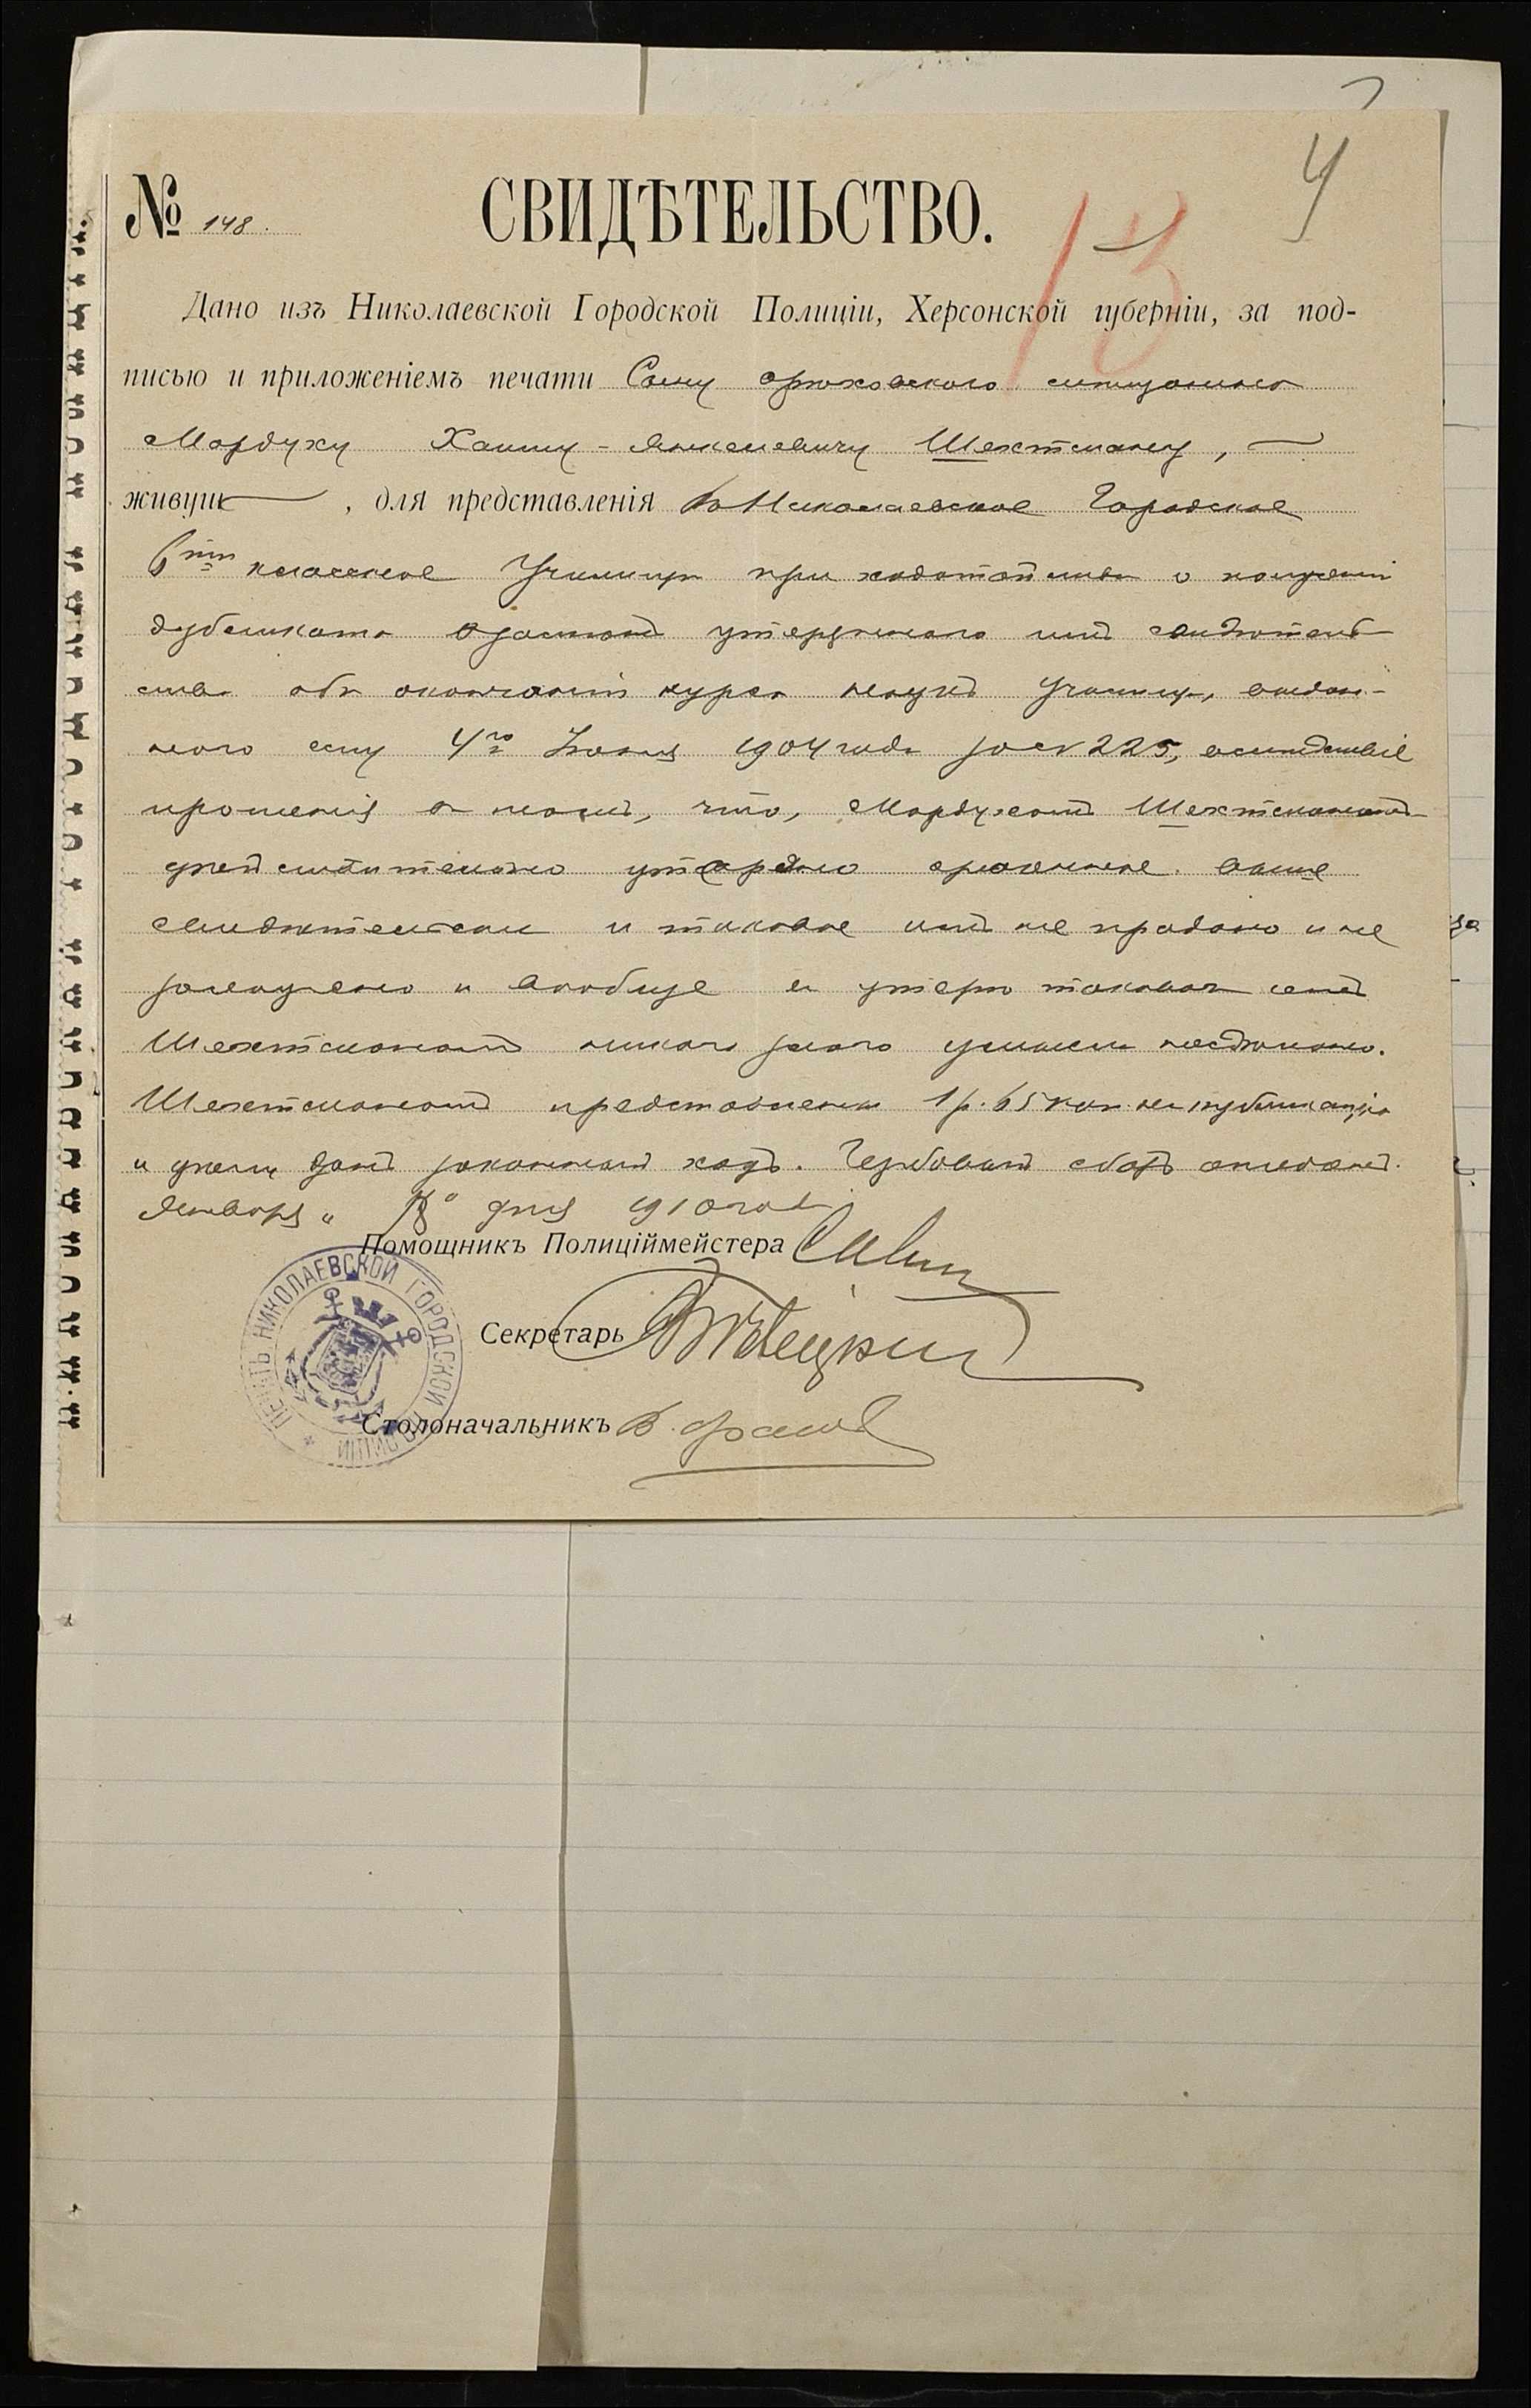 4
№ 148.
СВИДѢТЕЛЬСТВО.
13
Дано изъ Николаевской Городской Полиціи, Херсонской губерніи, за под-
писью и приложеніемъ печати Сыну орѣховского мѣщанина
Мордуху Хаиму-Янкелевичу Шехтману,
живущ , для представленія въ Николаевское Городское
6ти классное Училище при ходатайствѣ о полученіи
дубликата взамѣнъ утеряннаго имъ свидѣтель-
ства объ окончаніи курса наукъ Училища, выдан-
ного ему 4го 1904 года за № 225, вслѣдствіе
прошенія и въ томъ, что, Мордухомъ Шехтманомъ
дѣйствительно утеряно означенное выше
свидѣтельство и таковое имъ не продано и не
заложено и вообще въ утерѣ такового самъ
Шехтманомъ никакого злого умысла не
Шехтманомъ представлены 1 р. 65 коп. на публикацію
и дѣлу данъ законный ходъ. Гербовый сборъ оплаченъ.
Января " 18 " дня 1910 года
Помощникъ Полиціймейстера
Секретарь
Столоначальникъ В.
ПЕЧАТЬ НИКОЛАЕВСКОЙ ГОРОДСКОЙ ПОЛИЦІИ